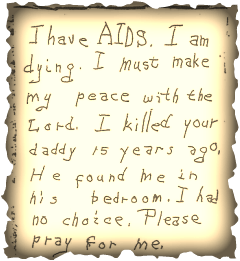 I have AIDS. I am
dying. I must make
my peace with the
Lord. I killed your
daddy 15 years ago.
He found me in
his bedroom. I had
no choice. Please
pray for me.